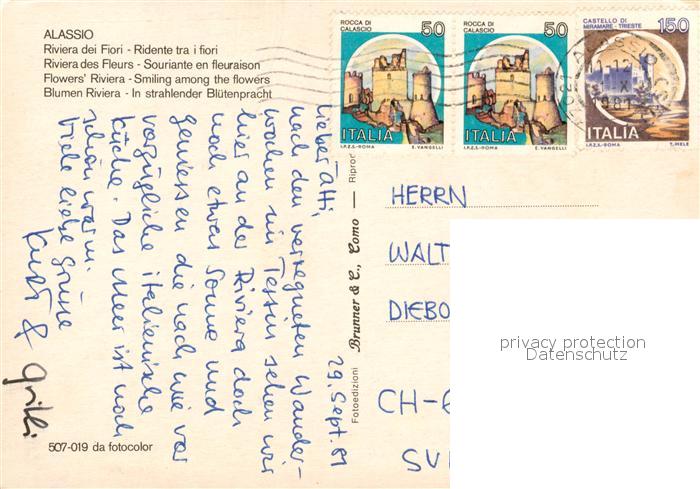 ALASSIO
Riviera dei Fiori - Ridente tra i fiori
Riviera des Fleurs - Souriante en fleuraison
Flowers' Riviera - Smiling among the flowers
Blumen Riviera - In strahlender Blütenpracht
ROCCA DI
CALASCIO
50
ITALIA
I.P.Z.S.-ROMA E. VANGELLI
ROCCA DI
CALASCIO
50
ITALIA
I.P.Z.S.-ROMA E. VANGELLI
CASTELLO DI
MIRAMARE - TRIESTE
150
ITALIA
I.P.Z.S.-ROMA T. MELE
29. Sept. 81
Lieber Ätti,
nach den verregneten Wander-
wochen im Tessin sehen wir
hier an der Riviera doch
noch etwas Sonne und
geniessen die nach wie vor
vorzügliche italienische
Küche. Das Meer ist noch
schön warm.
Viele liebe Grüsse
Kurt &
Fotoedizioni Brunner & C., Como — Ripror
HERRN
WALT
DIEBO
CH-6
SV
privacy protection
Datenschutz
507-019 da fotocolor